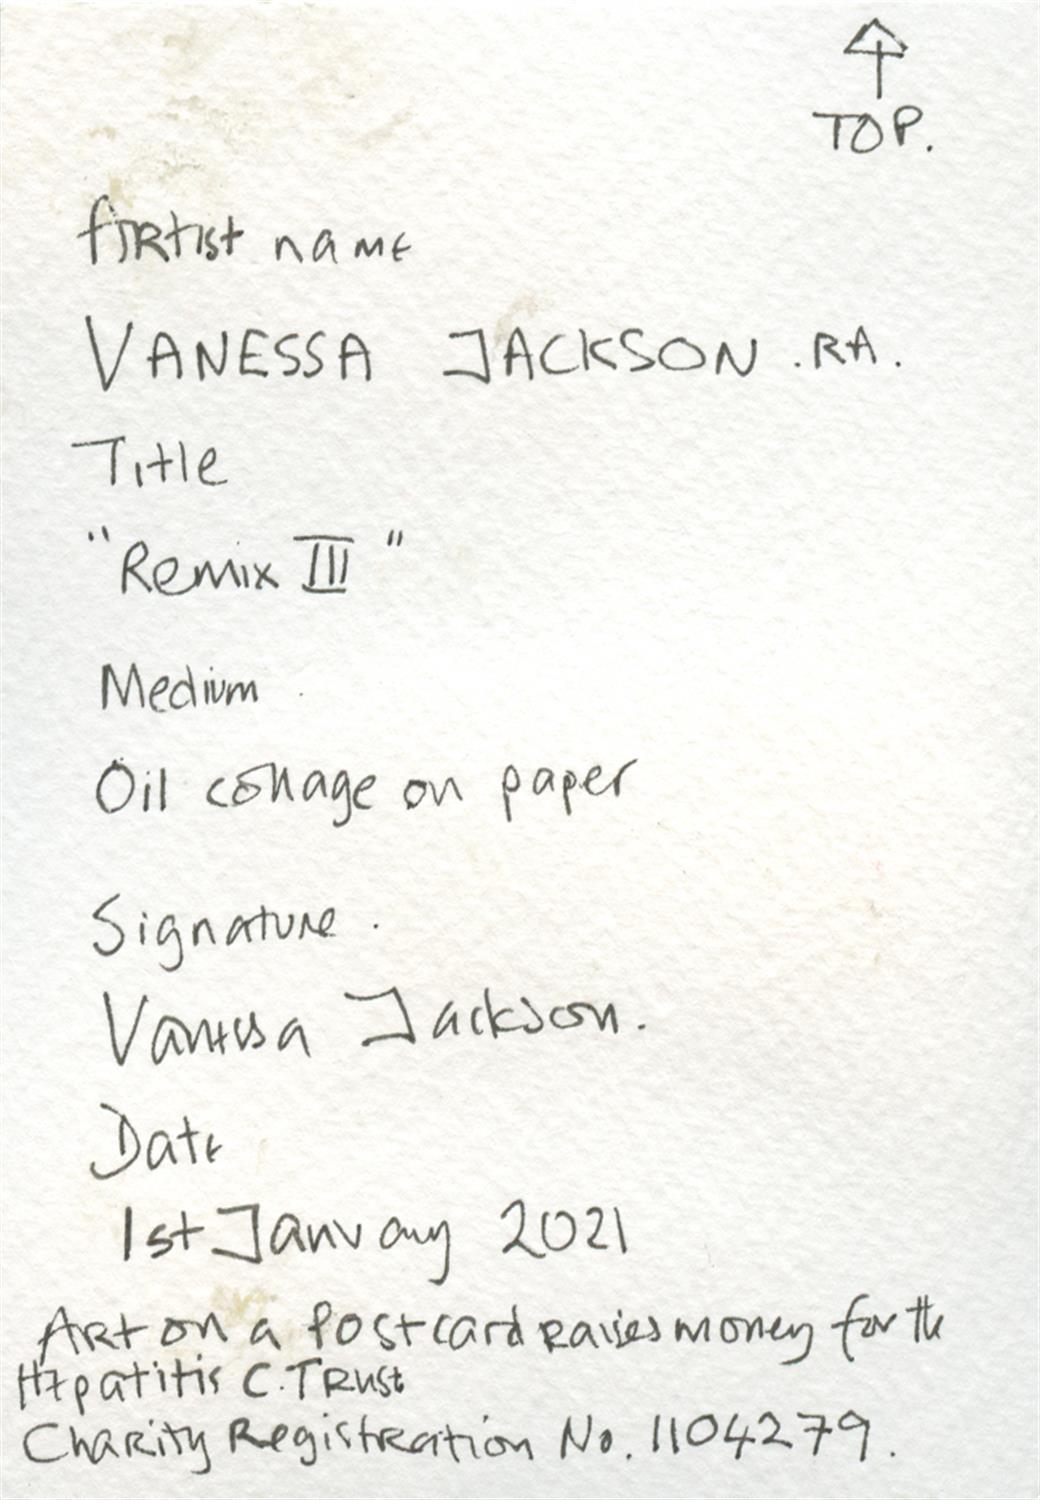 TOP.
Artist name
VANESSA JACKSON .RA.
Title
"Remix III"
Medium
Oil collage on paper
Signature.
Vanessa Jackson.
Date
1st January 2021
Art on a Postcard raises money for the
Hepatitis C. Trust
Charity Registration No. 1104279.